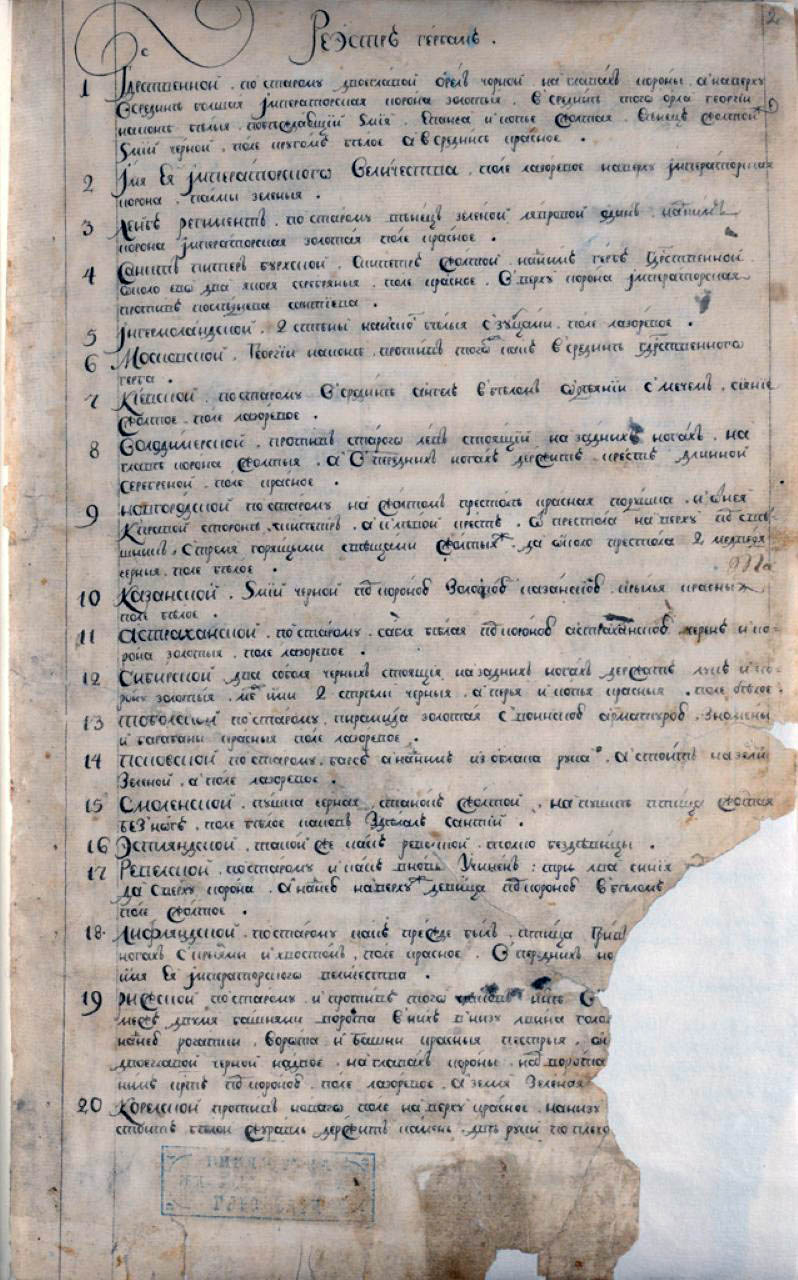 2
Реэстръ гербамъ .
1 Гдрственной . по старому двоеглавой орелъ черной на главахъ короны а наверху
Всрединѣ большая Jмператорская корона золотыя . Всрединѣ того орла георгiи
наконѣ бѣлыя побѣдавщiй змiя . Епанча и копье жолтая . вѣнецъ жолтой
змiй черной . поле кругомъ бѣлое а всрединѣ красное .
2 Jмя Ея Jмператорского Величества , поле лазоревое наверху Jмператорская
корона , палмы зеленыя .
3 Лейбъ региментъ . по старому вѣнецъ зеленой лавровой одинъ . нанимъ
корона Jмператорская золотая поле красное .
4 Санктъ питеръ бурхской , скипетръ жолтой . нанимъ гербъ Гдрственной
около ево два якоря серебряныя . поле красное . Сверху корона Jмператорская
противъ сантiева .
5 Jнгермоландской . 2 стены бѣлыя сзубцами . поле лазоревое .
6 Московской . Георгiи наконѣ . противъ того какъ всрединѣ гдрственного
герба .
7 Кiевской . по старому всрединѣ ангелъ вбѣломъ одѣянiи смечемъ . сiянiе
жолтое . поле лазоревое .
8 Володимерской . противъ старого левъ стоящiй на заднихъ ногахъ . на
главѣ корона жолтыя . а впереднихъ ногахъ держитъ крестъ длинной
серебреной . поле красное .
9 новгородской по старому на жолтомъ престолѣ красная подушка . и оней
справой стороны . скипетръ . а слѣвой крестъ . о престола наверху
стремя горящими свѣщами жолтыя . да около престола 2 медведя
черныя . поле бѣлое .
10 Казанской . змiй черной под короною золотою казанскою . крылья красны
поле бѣлое .
11 Астраханской . по старому . сабля бѣлая под короною астраханскою . черенъ и ко-
рона золотыя . поле лазоревое .
12 Сибирской два соболя черныхъ стоящiя на заднихъ ногахъ держатъ лукъ и ко-
рону золотыя . ими 2 стрелы черныя . а перья и копья красныя . поле бѣлое .
13 тоболской по старому . пирамида золотая своинскою арматурою . знамены
и барабаны красныя поле лазоревое .
14 псковской по старому . барсъ а нанимъ из облака рука . а стоитъ на земли
зеленой . а поле лазоревое .
15 Смоленской . пушка черная . станокъ жолтой . на пушкѣ птица жолтая
без ногъ . поле бѣлое каковъ здѣлалъ сантiй .
16 Эстляндской . такой же какъ ревелской . толко бездѣвицы .
17 Ревелской . по старому и какъ вновь учиненъ : три лва синiя
да сверху корона . а наней наверху дѣвица под короною вбѣломъ
поле жолтое .
18 . Лифляндской . по старому какъ прежде былъ . птица Грив
ногахъ скрылми и хвостомъ , поле красное . впереднихъ но
имя Ея Jмператорского величества .
19 рижской по старому . и противъ того
межъ двумя башнями ворота вникъ внизу лвина голо
наней рогатки , ворота и башни красныя пестрыя .
двоеглавой черной надвое . на главахъ короны . над ворота
нимъ крстъ под короною . поле лазоревое . а земля зеленая
20 Корелской противъ новаго поле наверху красное . нанизу
бѣлой держитъ камень . двѣ руки по плечо